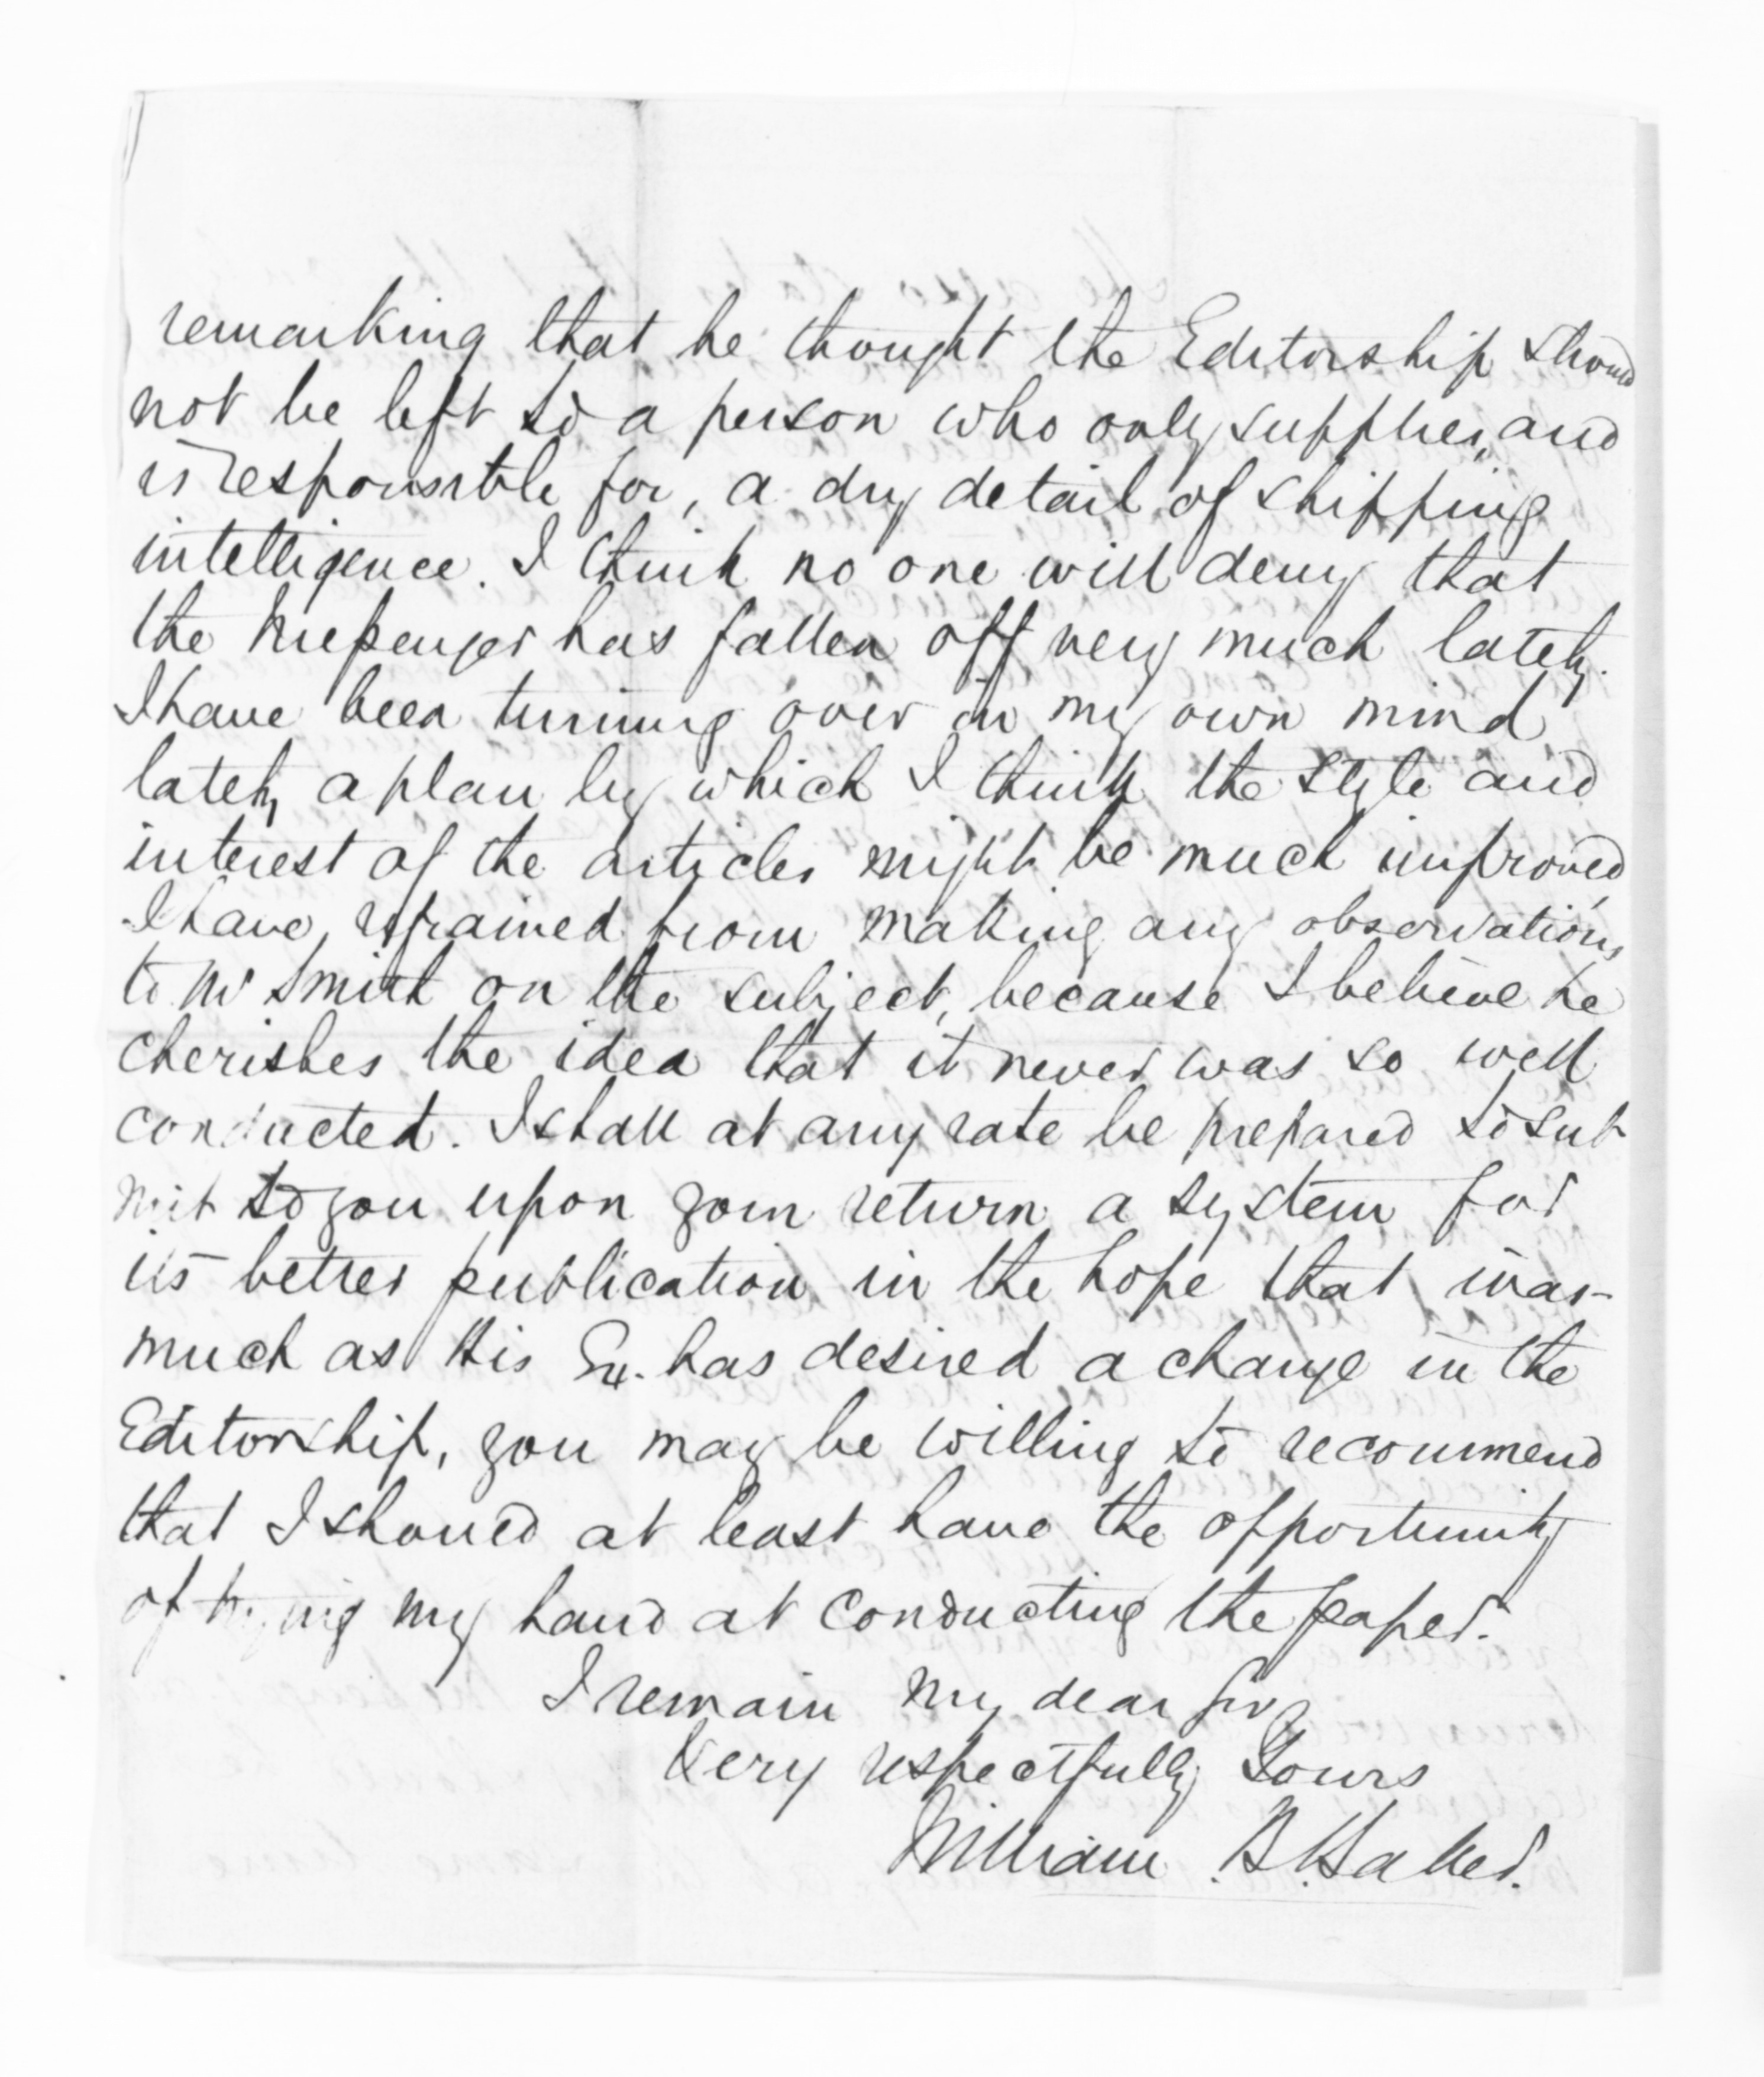 remarking that he thought the Editorship should
not be left to a person who only supplies, and
is responsible for, a dry detail of shipping
intelligence. I think no one will deny that
the Messenger has fallen off very much lately.
I have been turning over in my own mind
lately a plan by which I think the style and
interest of the articles might be much improved,
I have refrained from making any observations
to Mr Smith on the subject, because I believe he
cherishes the idea that it never was so well
conducted. I shall at any rate be prepared to sub
mit to you upon your return a system for
its better publication in the hope that inas-
much as His Ex. has desired a change in the
Editorship, you may be willing to recommend
that I should at least have the opportunity
of trying my hand at conducting the paper.
I remain my dear Sir
Very respectfully Yours
William B.